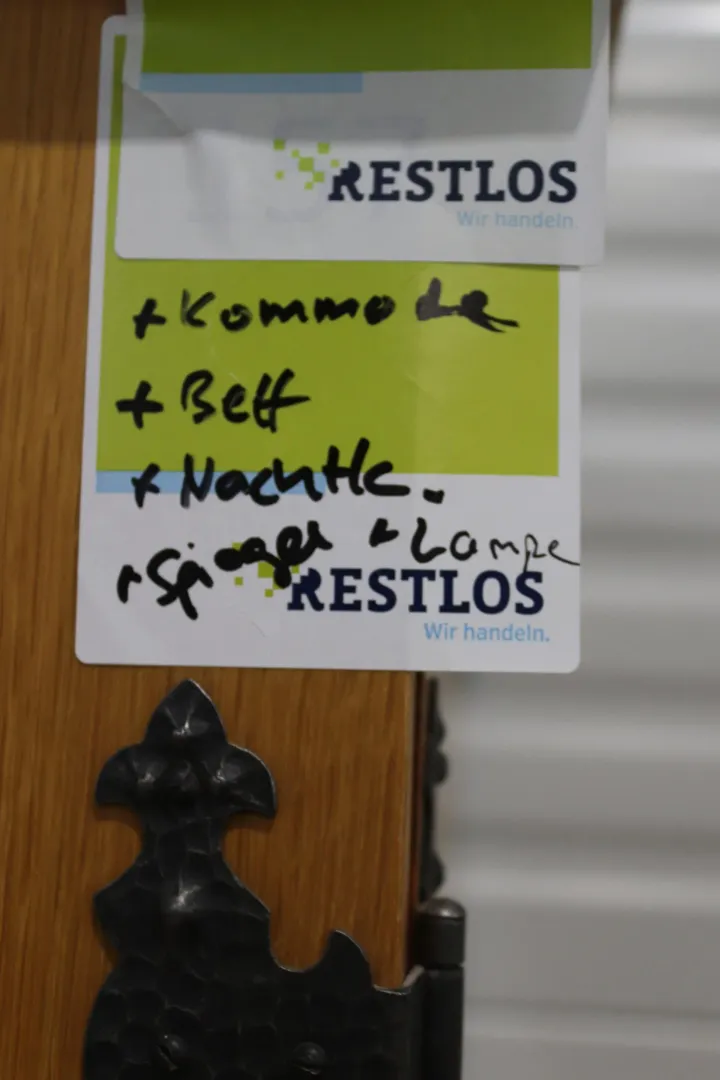 RESTLOS
Wir handeln.
+ Kommode
+ Bett
+ Nachttc.
+ Spiegel + Lampe
RESTLOS
Wir handeln.